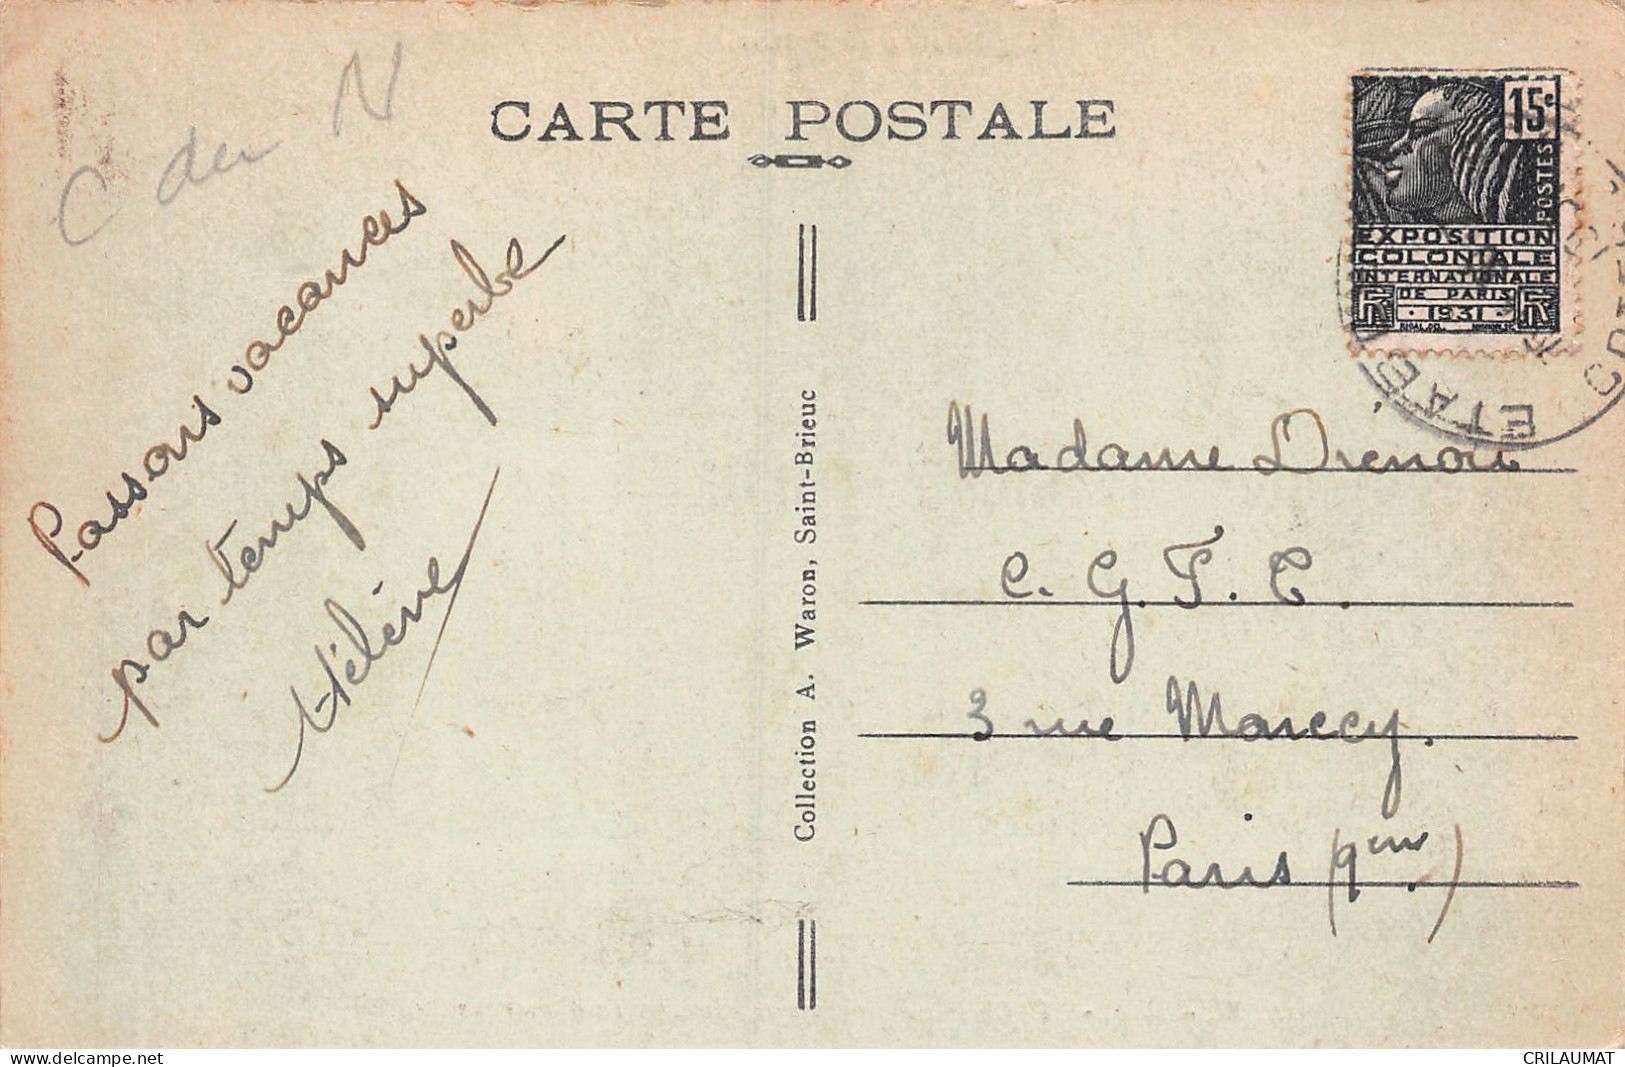 C du N
CARTE POSTALE
Passons vacances
par temps superbe
Hélène
Collection A. Waron, Saint-Brieuc
15c
POSTES
EXPOSITION
COLONIALE
INTERNATIONALE
DE PARIS
RF · 1931 · RF
ETAB
Madame Drenou
C. G. T. C.
3 rue Marccy.
Paris (9em)
www.delcampe.net
CRILAUMAT